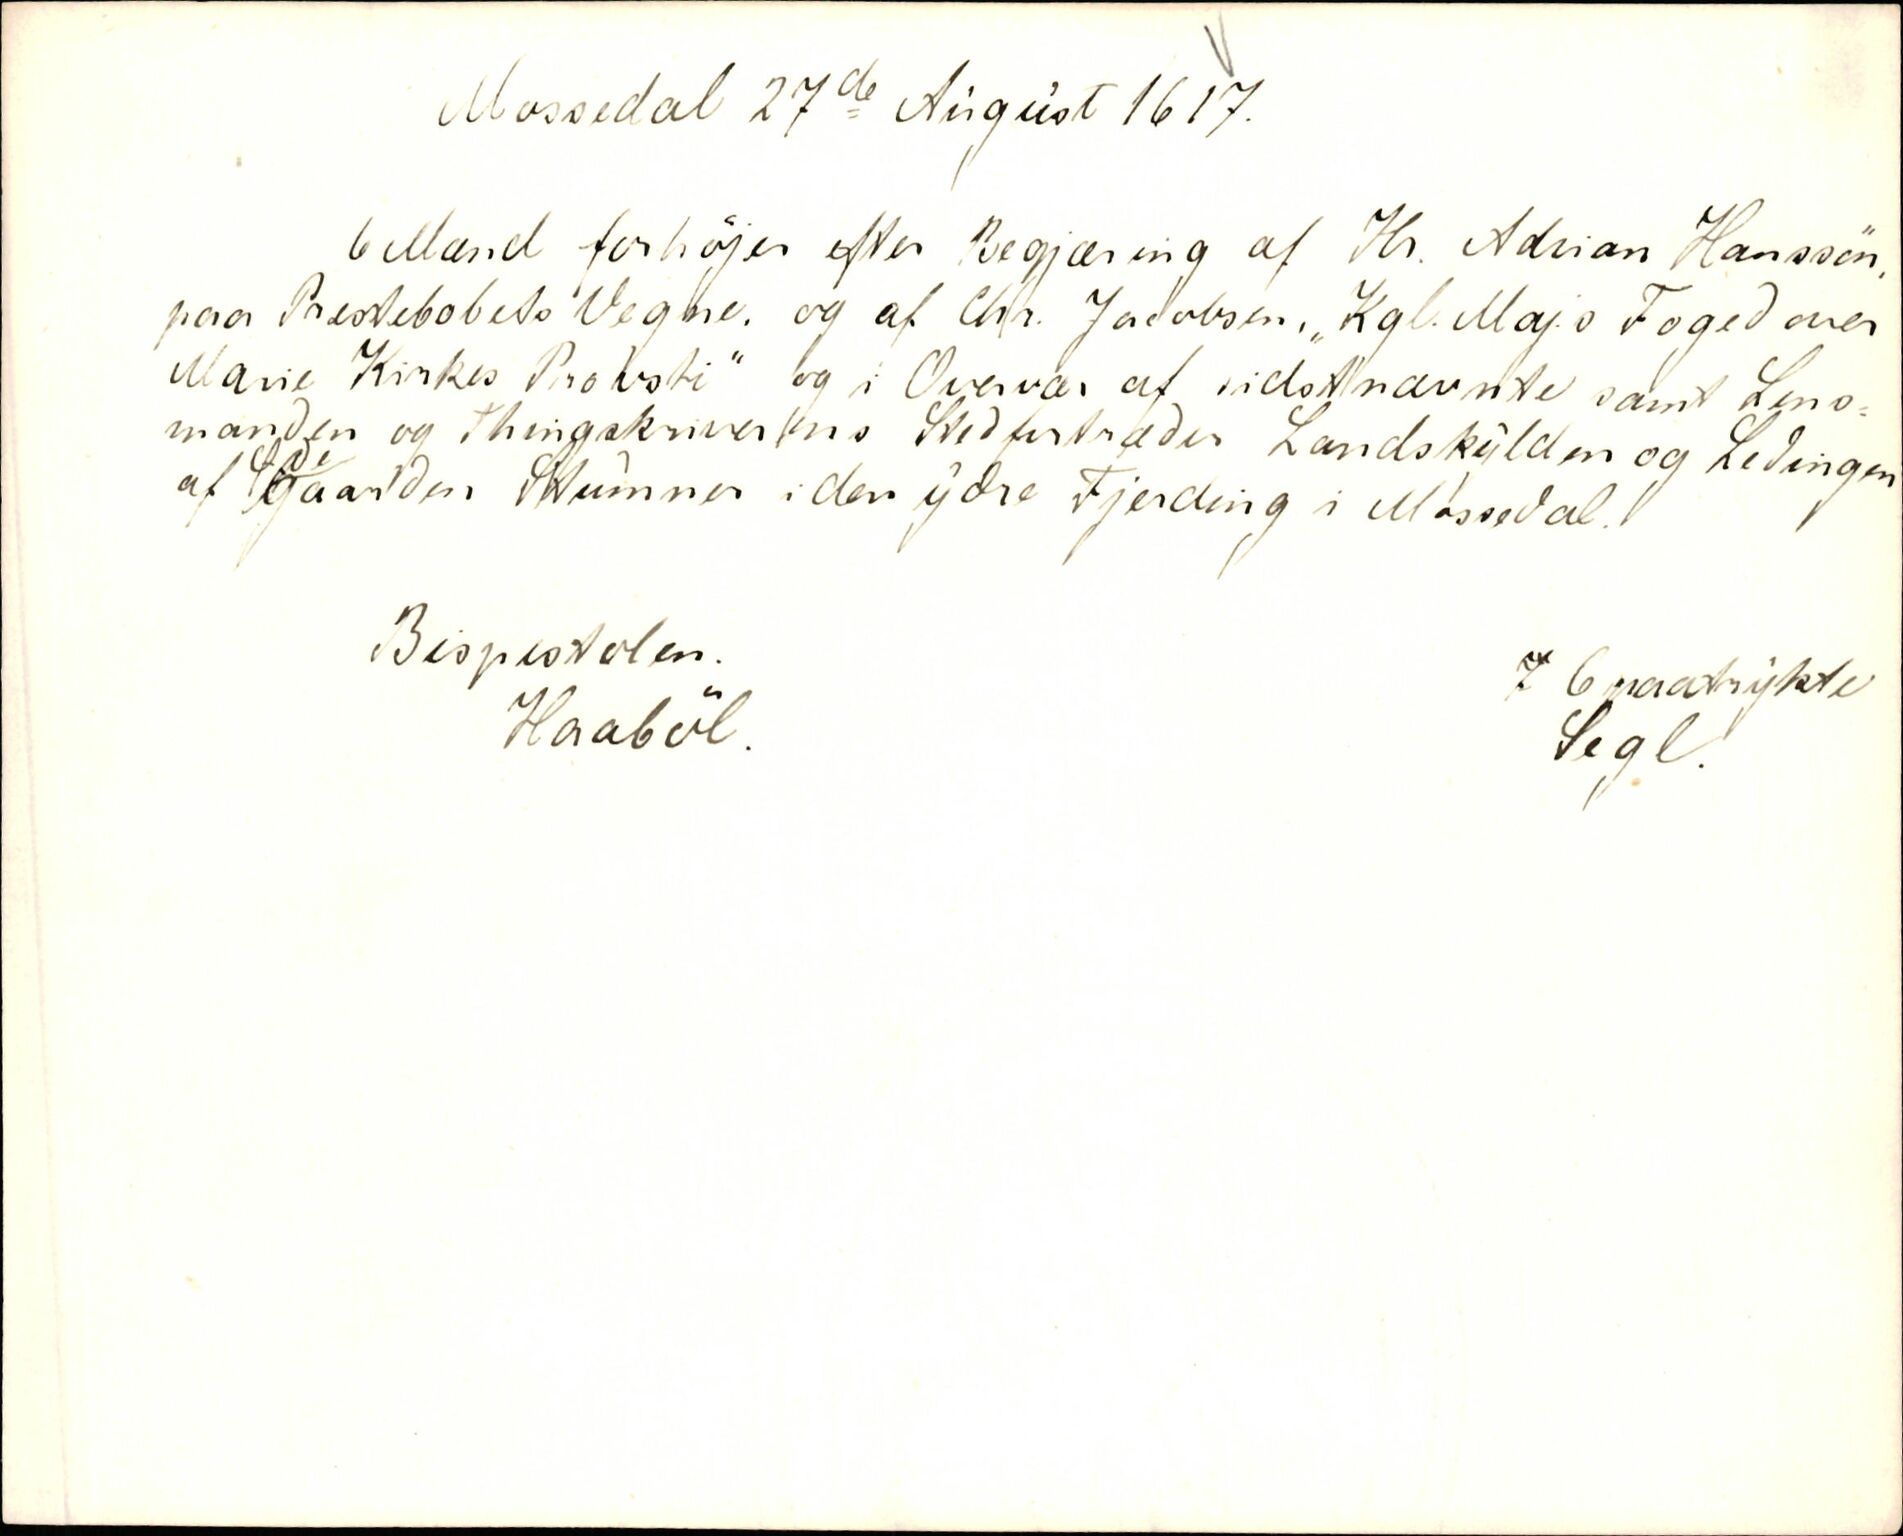 Mossedal 27de August 1617.
6 Mænd forhöjer efter Begjæring af Hr. Adrian Hanssön,
paa Prestebolets Vegne, og af Chr. Jacobsen, „Kgl. Maj.s Foged over
Marie Kirkes Provsti“ og i Overvær af sidstnævnte samt Lens-
manden og Thingskriverens Stedfortræder Landskylden og Ledingen
af Ödegaarden Stumner i den ydre Fjerding i Mossedal.
Bispestolen.
Haaböl.
7 6 paatrykte
Segl.